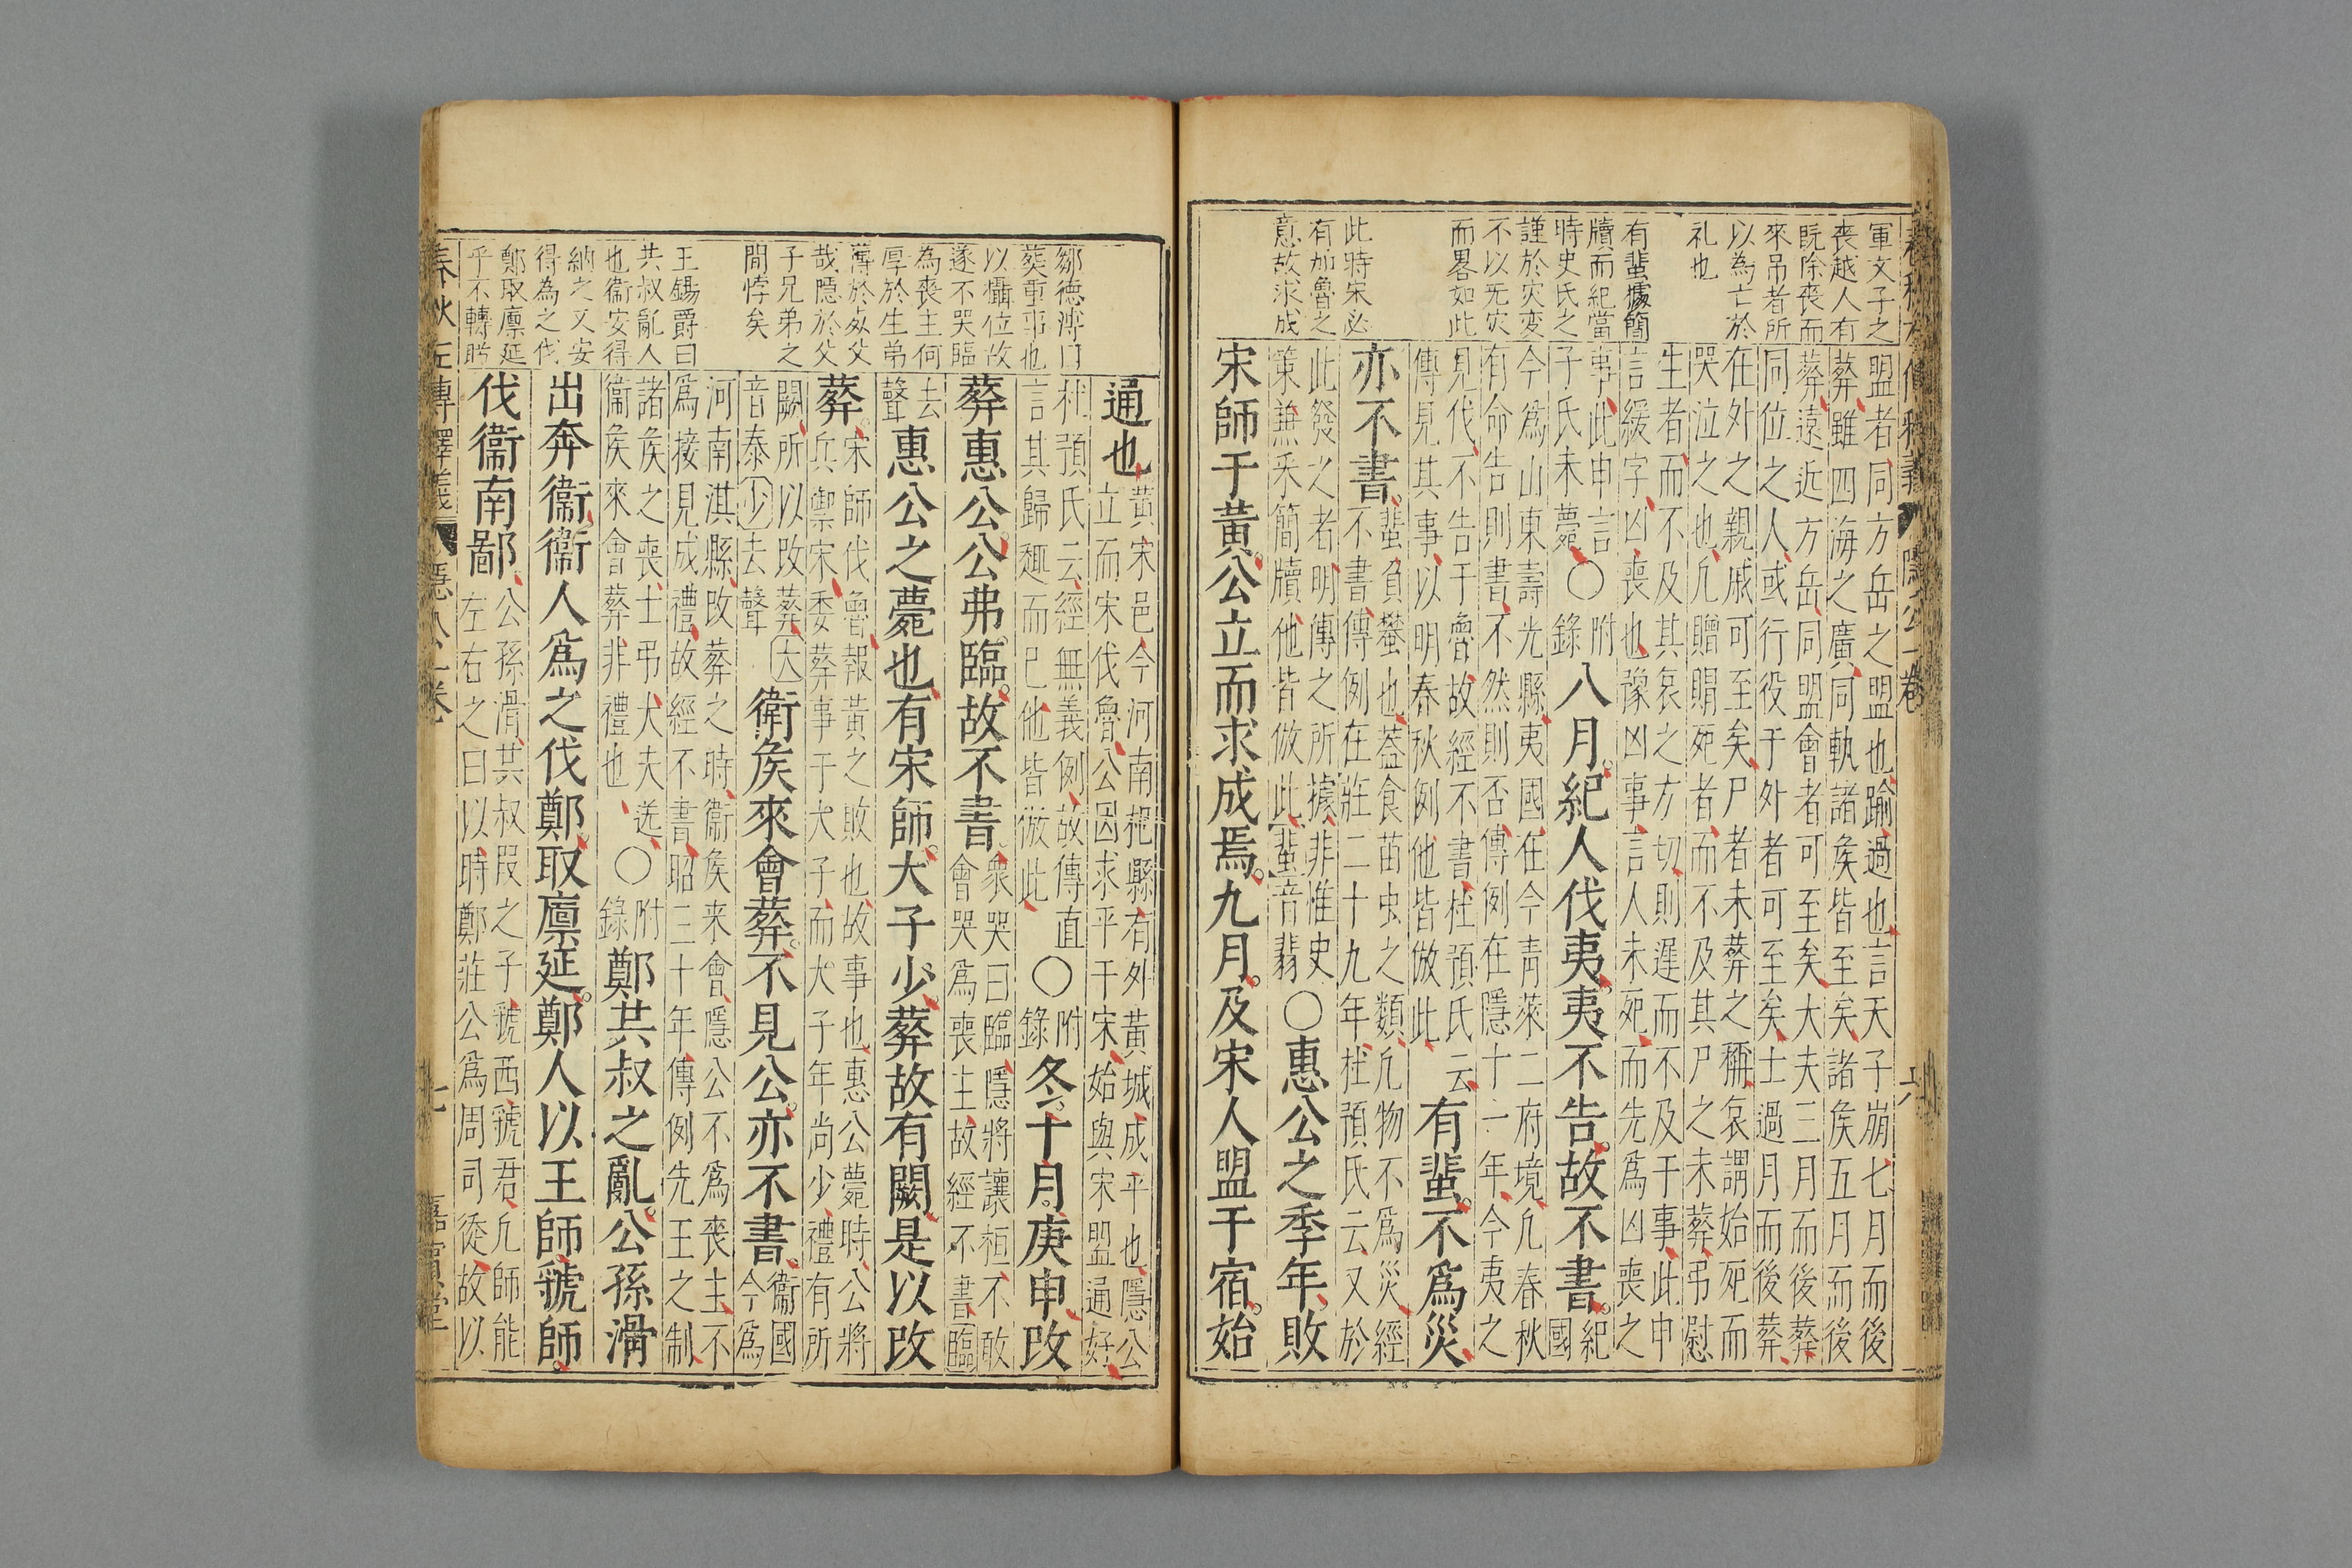 軍文子之
喪越人有
既除喪而
來吊者所
以為亡於
礼也
有蜚據簡
牘而紀當
時史氏之
謹於灾変
不以无灾
而畧如此
此時宋必
有加魯之
意故求成
盟者同方岳之盟也踰過也言天子崩七月而後
葬雖四海之廣同軌諸矦皆至矣諸矦五月而後
葬遠近方岳同盟會者可至矣大夫三月而後葬
同位之人或行役于外者可至矣士過月而後葬
在外之親戚可至矣尸者未葬之稱哀謂始死而
哭泣之也凢贈賵死者而不及其尸之未葬弔慰
生者而不及其哀之方切則遲而不及于事此申
言緩字凶喪也豫凶事言人未死而先為凶喪之
事此申言
子氏未薨〇附錄八月紀人伐夷夷不告故不書紀國
今為山東壽光縣夷國在今青萊二府境凢春秋
有命告則書不然則否傳例在隱十一年今夷之
見伐不告于魯故經不書杜預氏云
傳見其事以明春秋例他皆倣此有蜚不為災
亦不書蜚負蠜也葢食苗虫之類凢物不為災經
不書傳例在莊二十九年杜預氏云又於
此發之者明傳之所據非惟史
策兼采簡牘他皆倣此蜚音翡〇惠公之季年敗
宋師于黃公立而求成焉九月及宋人盟于宿始
春秋左傳釋義 隱公一卷 六
鄒德溥曰
葬重事也
以攝位故
遂不哭臨
為喪主何
厚於生弟
薄於死父
哉隱於父
子兄弟之
間悖矣
王錫爵曰
共叔亂人
也衞安得
納之又安
得為之伐
鄭取廩延
乎不轉盻
通也黃宋邑今河南杞縣有外黃城成平也隱公
立而宋伐魯公因求平于宋始與宋盟通好
杜預氏云經無義例故傳直
言其歸趣而已他皆倣此〇附錄冬十月庚申改
葬惠公公弗臨故不書衆哭曰臨隱將讓桓不敢
會哭為喪主故經不書臨
去聲惠公之薨也有宋師大子少葬故有闕是以改
葬宋師伐魯報黃之敗也故事也惠公薨時公將
兵禦宋委葬事于大子而大子年尚少禮有所
闕所以改葬大
音泰少去聲衛矦來會葬不見公亦不書衞國今為
河南淇縣改葬之時衞矦来會隱公不為喪主不
為接見成禮故經不書昭三十年傳例先王之制
諸矦之喪士弔大夫送
衞矦來會葬非禮也〇附錄鄭共叔之亂公孫滑
出奔衞衞人為之伐鄭取廩延鄭人以王師虢師
伐衞南鄙公孫滑共叔叚之子虢西虢君凢師能
左右之曰以時鄭莊公為周司徒故以
春秋左傳釋義 隱公一卷 七